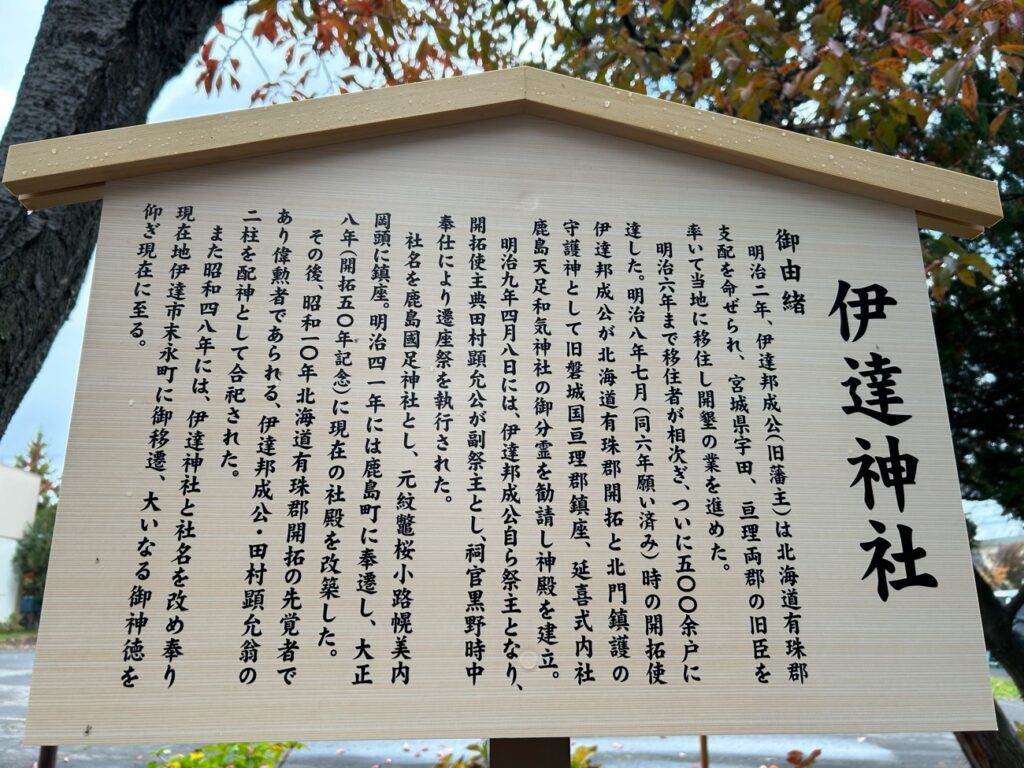 伊達神社
御由緒
明治二年、伊達邦成公(旧藩主)は北海道有珠郡
支配を命ぜられ、宮城県宇田、亘理両郡の旧臣を
率いて当地に移住し開墾の業を進めた。
明治六年まで移住者が相次ぎ、ついに五〇〇余戸に
達した。明治八年七月(同六年願い済み)時の開拓使
伊達邦成公が北海道有珠郡開拓と北門鎮護の
守護神として旧磐城国亘理郡鎮座、延喜式内社
鹿島天足和気神社の御分霊を勧請し神殿を建立。
明治九年四月八日には、伊達邦成公自ら祭主となり、
開拓使主典田村顕允公が副祭主とし、祠官黒野時中
奉仕により遷座祭を執行された。
社名を鹿島國足神社とし、元紋鼈桜小路幌美内
岡頭に鎮座。明治四一年には鹿島町に奉遷し、大正
八年(開拓五〇年記念)に現在の社殿を改築した。
その後、昭和一〇年北海道有珠郡開拓の先覚者で
あり偉勲者であられる、伊達邦成公・田村顕允翁の
二柱を配神として合祀された。
また昭和四八年には、伊達神社と社名を改め奉り
現在地伊達市末永町に御移遷、大いなる御神徳を
仰ぎ現在に至る。